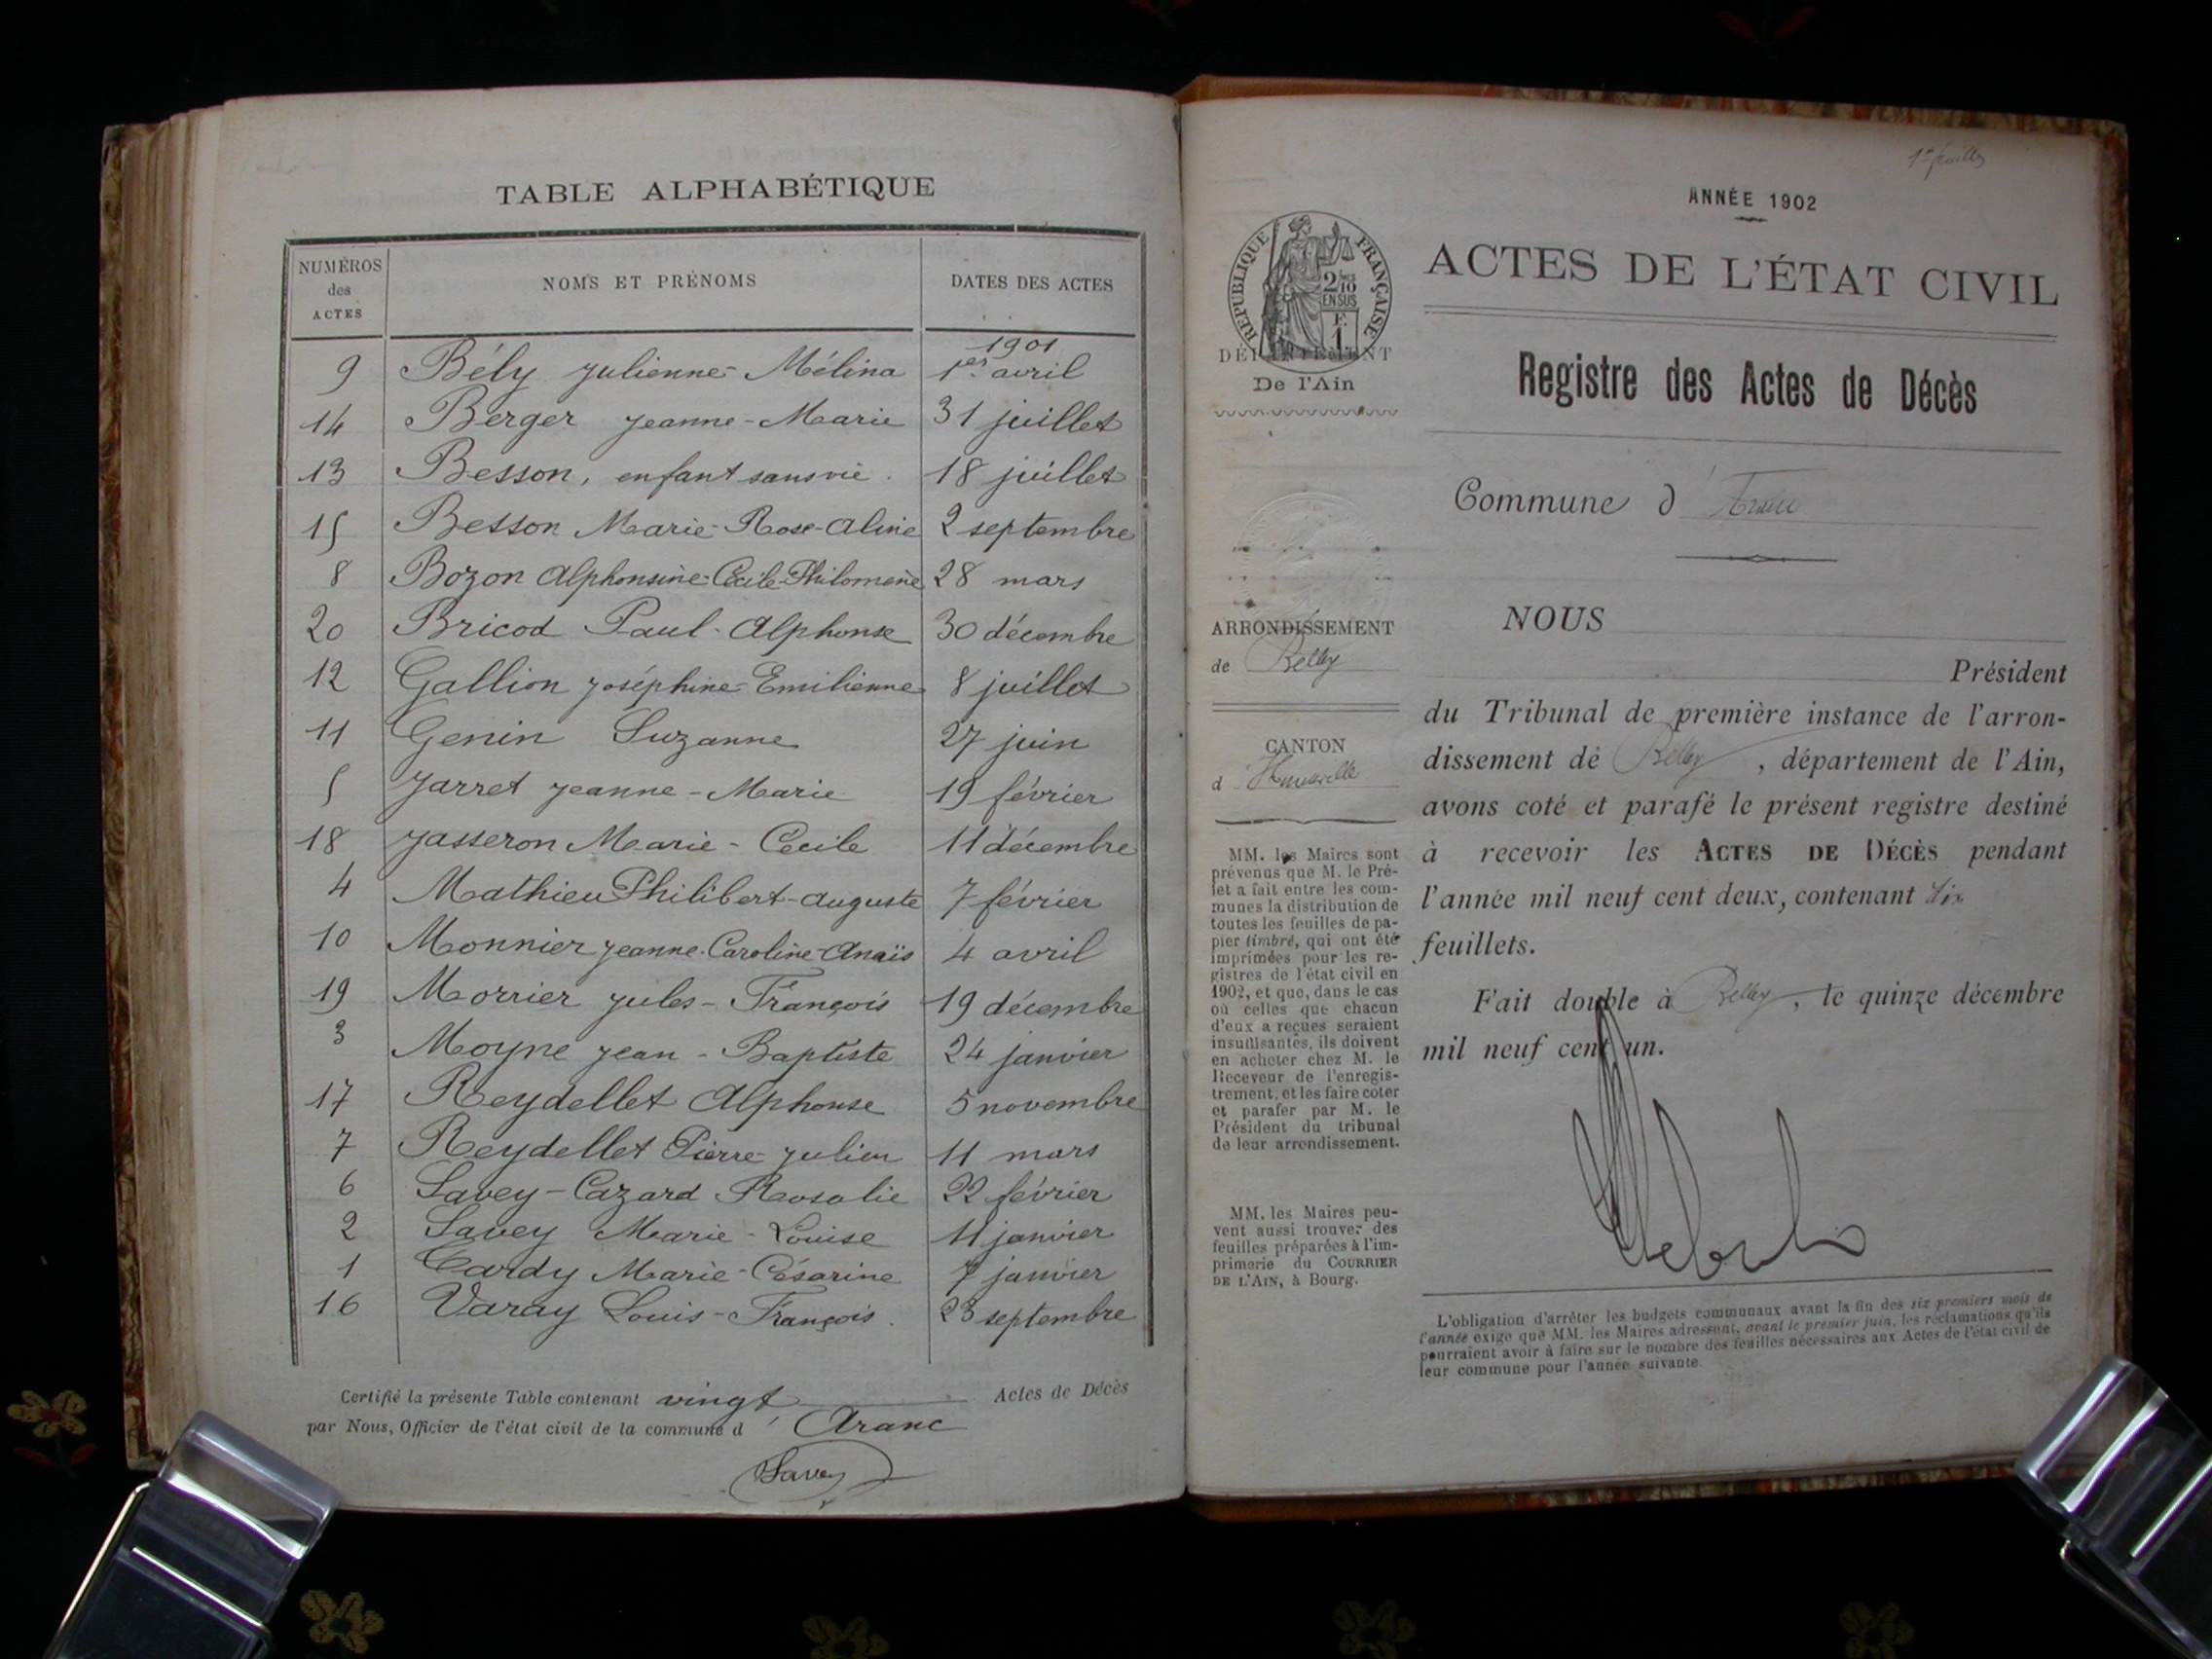 TABLE ALPHABÉTIQUE
NUMÉROS des ACTES
NOMS ET PRÉNOMS
DATES DES ACTES
1901
9 Bély Julienne-Mélina 1er avril
14 Berger Jeanne-Marie 31 juillet
13 Besson, enfant sans vie. 18 juillet
15 Besson Marie-Rose-Aline 2 septembre
8 Bozon Alphonsine-Cécile-Philomène 28 mars
20 Bricod Paul-Alphonse 30 décembre
12 Gallion Joséphine-Emilienne 8 juillet
11 Genin Suzanne 27 juin
5 Jarret Jeanne-Marie 19 février
18 Jasseron Marie-Cécile 11 décembre
4 Mathieu Philibert-Auguste 7 février
10 Monnier Jeanne-Caroline-Anaïs 4 avril
19 Morrier Jules-François 19 décembre
3 Moyne Jean-Baptiste 24 janvier
17 Reydellet Alphonse 5 novembre
7 Reydellet Pierre-Julien 11 mars
6 Savey-Cazard Rosalie 22 février
2 Savey Marie-Louise 11 janvier
1 Tardy Marie-Césarine 7 janvier
16 Varay Louis-François. 23 septembre
Certifié la présente Table contenant vingt Actes de Décès
par Nous, Officier de l'état civil de la commune d'Aranc
Savey
ANNÉE 1902
RÉPUBLIQUE FRANÇAISE
2/10
EN SUS
F.
1
DÉPARTEMENT
De l'Ain
ARRONDISSEMENT
de Belley
CANTON
d'Hauteville
MM. les Maires sont
prévenus que M. le Pré-
fet a fait entre les com-
munes la distribution de
toutes les feuilles de pa-
pier timbré, qui ont été
imprimées pour les re-
gistres de l'état civil en
1902, et que, dans le cas
où celles que chacun
d'eux a reçues seraient
insuffisantes, ils doivent
en acheter chez M. le
Receveur de l'enregis-
trement, et les faire coter
et parafer par M. le
Président du tribunal
de leur arrondissement.
MM. les Maires peu-
vent aussi trouver des
feuilles préparées à l'im-
primerie du COURRIER
DE L'AIN, à Bourg.
1er feuillet
ACTES DE L'ÉTAT CIVIL
Registre des Actes de Décès
Commune d'Aranc
NOUS
Président
du Tribunal de première instance de l'arron-
dissement de Belley, département de l'Ain,
avons coté et parafé le présent registre destiné
à recevoir les ACTES DE DÉCÈS pendant
l'année mil neuf cent deux, contenant
feuillets.
Fait double à Belley, le quinze décembre
mil neuf cent un.
L'obligation d'arrêter les budgets communaux avant la fin des six premiers mois de
l'année exige que MM. les Maires adressent, avant le premier juin, les réclamations qu'ils
pourraient avoir à faire sur le nombre des feuilles nécessaires aux Actes de l'état civil de
leur commune pour l'année suivante.